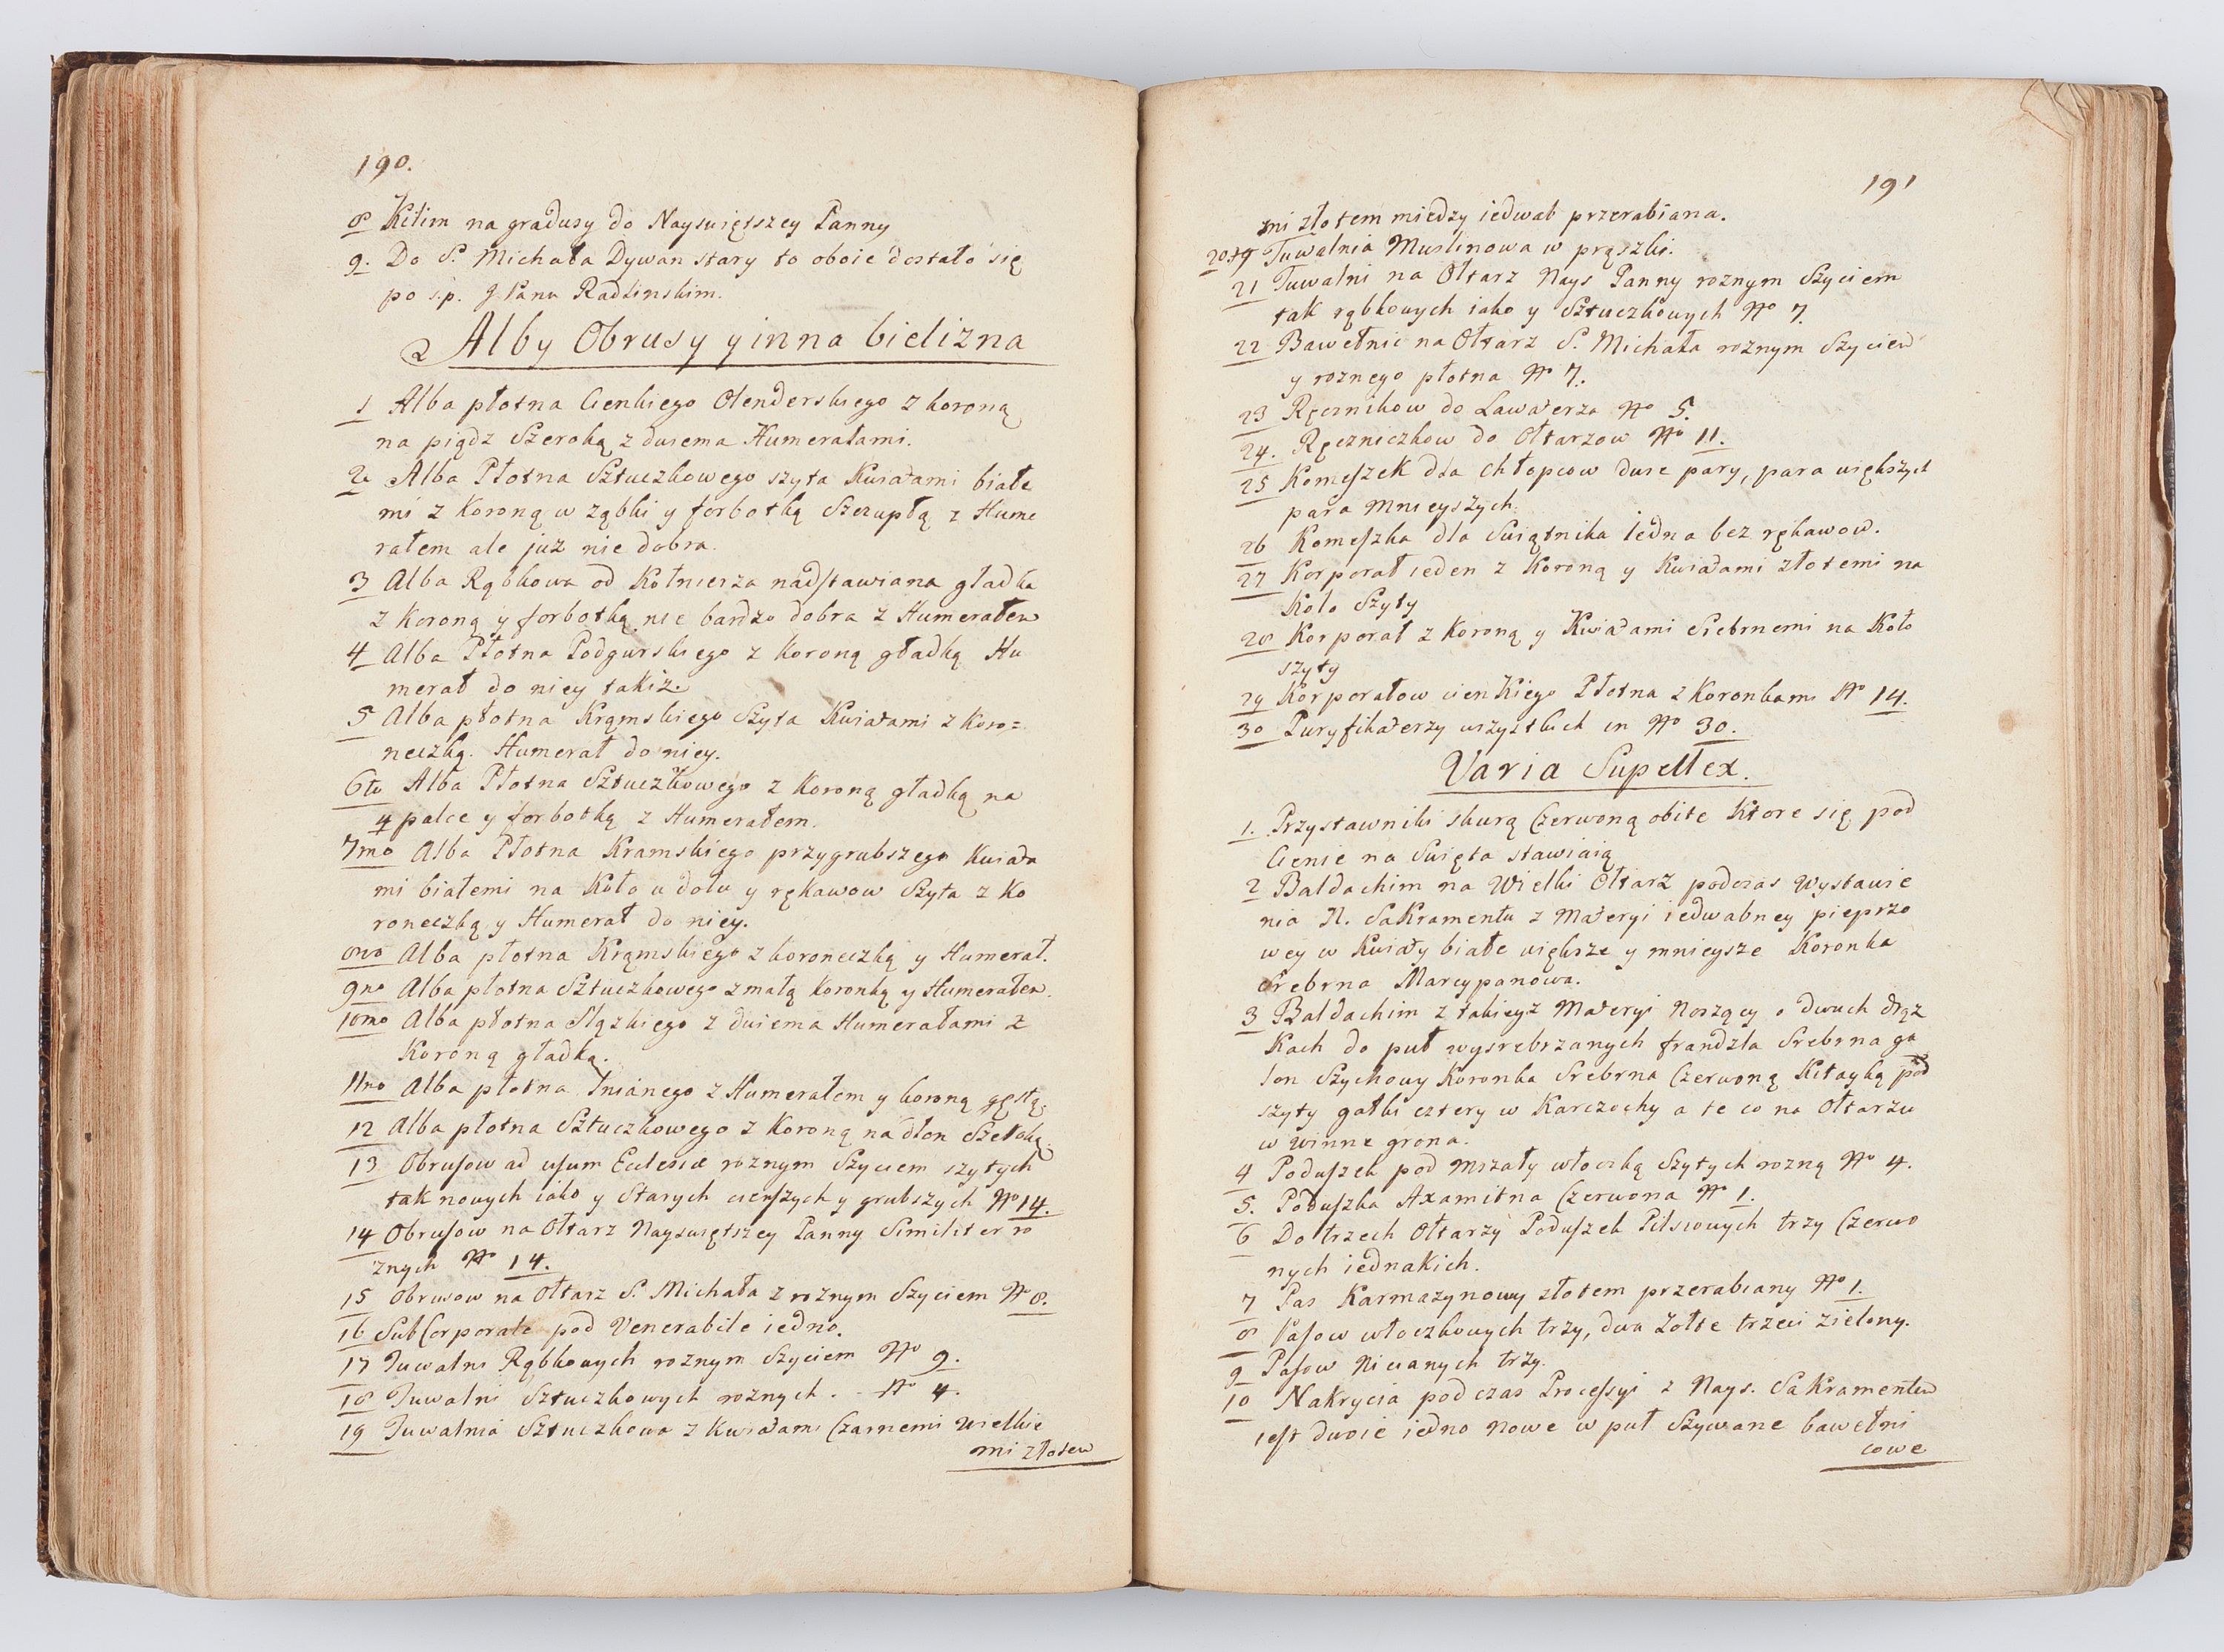 190.
8 Kilim na gradusy do Nayswiętszey Panny
9. Do S. Michała Dywan stary to oboie dostało się
po s.p. J Panu Radlinskim.
Alby Obrusy y inna bielizna
1 Alba płotna Cienkiego Olenderskiego z koroną
na piądz Szeroką z dwiema Humerałami.
2. Alba Płotna Sztuczkowego szyta Kwiatami białe
mi z Koroną w ząbki y forbotką Szczupłą z Hume
rałem ale juz nie dobra.
3 Alba Rąbkowa od Kołnierza nadstawiana gładka
z Koroną y forbotką nie bardzo dobra z Humerałem
4 Alba Płotna Podgurskiego z koroną gładką Hu
merał do niey takiz.
5 Alba płotna Krąmskiego Szyta Kwiatami z Koro=
neczką. Humerał do niey.
6to Alba Płotna Sztuczkowego z Koroną gładką na
4 palce y forbotką z Humerałem.
7mo Alba Płotna Kramskiego przygrubszego Kwiata
mi białemi na Koło u dołu y rękawow Szyta z Ko
roneczką y Humerał do niey.
8vo Alba płotna Krąmskiego z koroneczką y Humerał.
9no Alba płotna Sztuczkowego z małą Koronką y Humerałem.
10mo Alba płotna Slązkiego z dwiema Humerałami z
Koroną gładką.
11no Alba płotna lnianego z Humerałem y koroną gęstą.
12 Alba płotna Sztuczkowego z Koroną na dłon Szeroką.
13 Obrusow ad usum Ecclesiæ roznym Szyciem szytych
tak nowych iako y Starych cienszych y grubszych No 14.
14 Obrusow na Ołtarz Nayswiętszey Panny Similiter ro
znych No 14.
15 Obrusow na Ołtarz S. Michała z roznym Szyciem No 8.
16 SubCorporale pod Venerabile iedno.
17 Tuwalni Rąbkowych roznym Szyciem No 9.
18 Tuwalni Sztuczkowych roznych. No 4.
19 Tuwalnia Sztuczkowa z Kwiatami Czarnemi wielkie
mi złotem
191
mi złotem miedzy iedwab przerabiana.
20. Tuwalnia Muslinowa w prąszki.
21 Tuwalni na Ołtarz Nays Panny roznym Szyciem
tak rąbkowych iako y Sztuczkowych No 7.
22 Bawełnic na Ołtarz S. Michała roznym Szyciem
y roznego płotna No 7.
23 Ręcznikow do Lawaterza No 5.
24. Ręczniczkow do Ołtarzow No 11.
25 Komeszek dla chłopcow dwie pary, para większych
para Mnieyszych.
26 Komeszka dla Swiątnika iedna bez rękawow.
27 Korporał ieden z Koroną y Kwiatami złotemi na
Koło Szyty
28 Korporał z Koroną y Kwiatami Srebrnemi na Koło
szyty
29 Korporałow cienkiego Płotna z Koronkami No 14.
30 Puryfikaterzy wszystkich in No 30.
Varia Supellex.
1. Przystawniki skurą Czerwoną obite Ktore się pod
Cienie na Swięta stawiaią
2 Baldachim na Wielki Ołtarz podczas Wystawie
nia N. Sakramentu z Materyi iedwabney pieprzo
wey w Kwiaty białe większe y mnieysze Koronka
Srebrna Marcypanowa.
3 Baldachim z takieyz Materyi Noszący o dwuch drąz
Kach do puł wysrebrzanych frandzla Srebrna ga
lon Szychowy Koronka Srebrna Czerwoną Kitayką pod
szyty gałki cztery w Karczochy a te co na Ołtarzu
w winne grona.
4 Poduszek pod Mszały włoczką Szytych rozną No 4.
5. Poduszka Axamitna Czerwona No 1.
6 Do trzech Ołtarzy Poduszek Pilsiowych trzy Czerwo
nych iednakich.
7 Pas Karmazynowy złotem przerabiany No 1.
8 Pasow włoczkowych trzy, dwa zołte trzeci zielony.
9 Pasow Nicianych trzy.
10 Nakrycia podczas Processyi z Nays. Sakramentem
iest dwoie iedno Nowe w puł Szywane bawełni
cowe